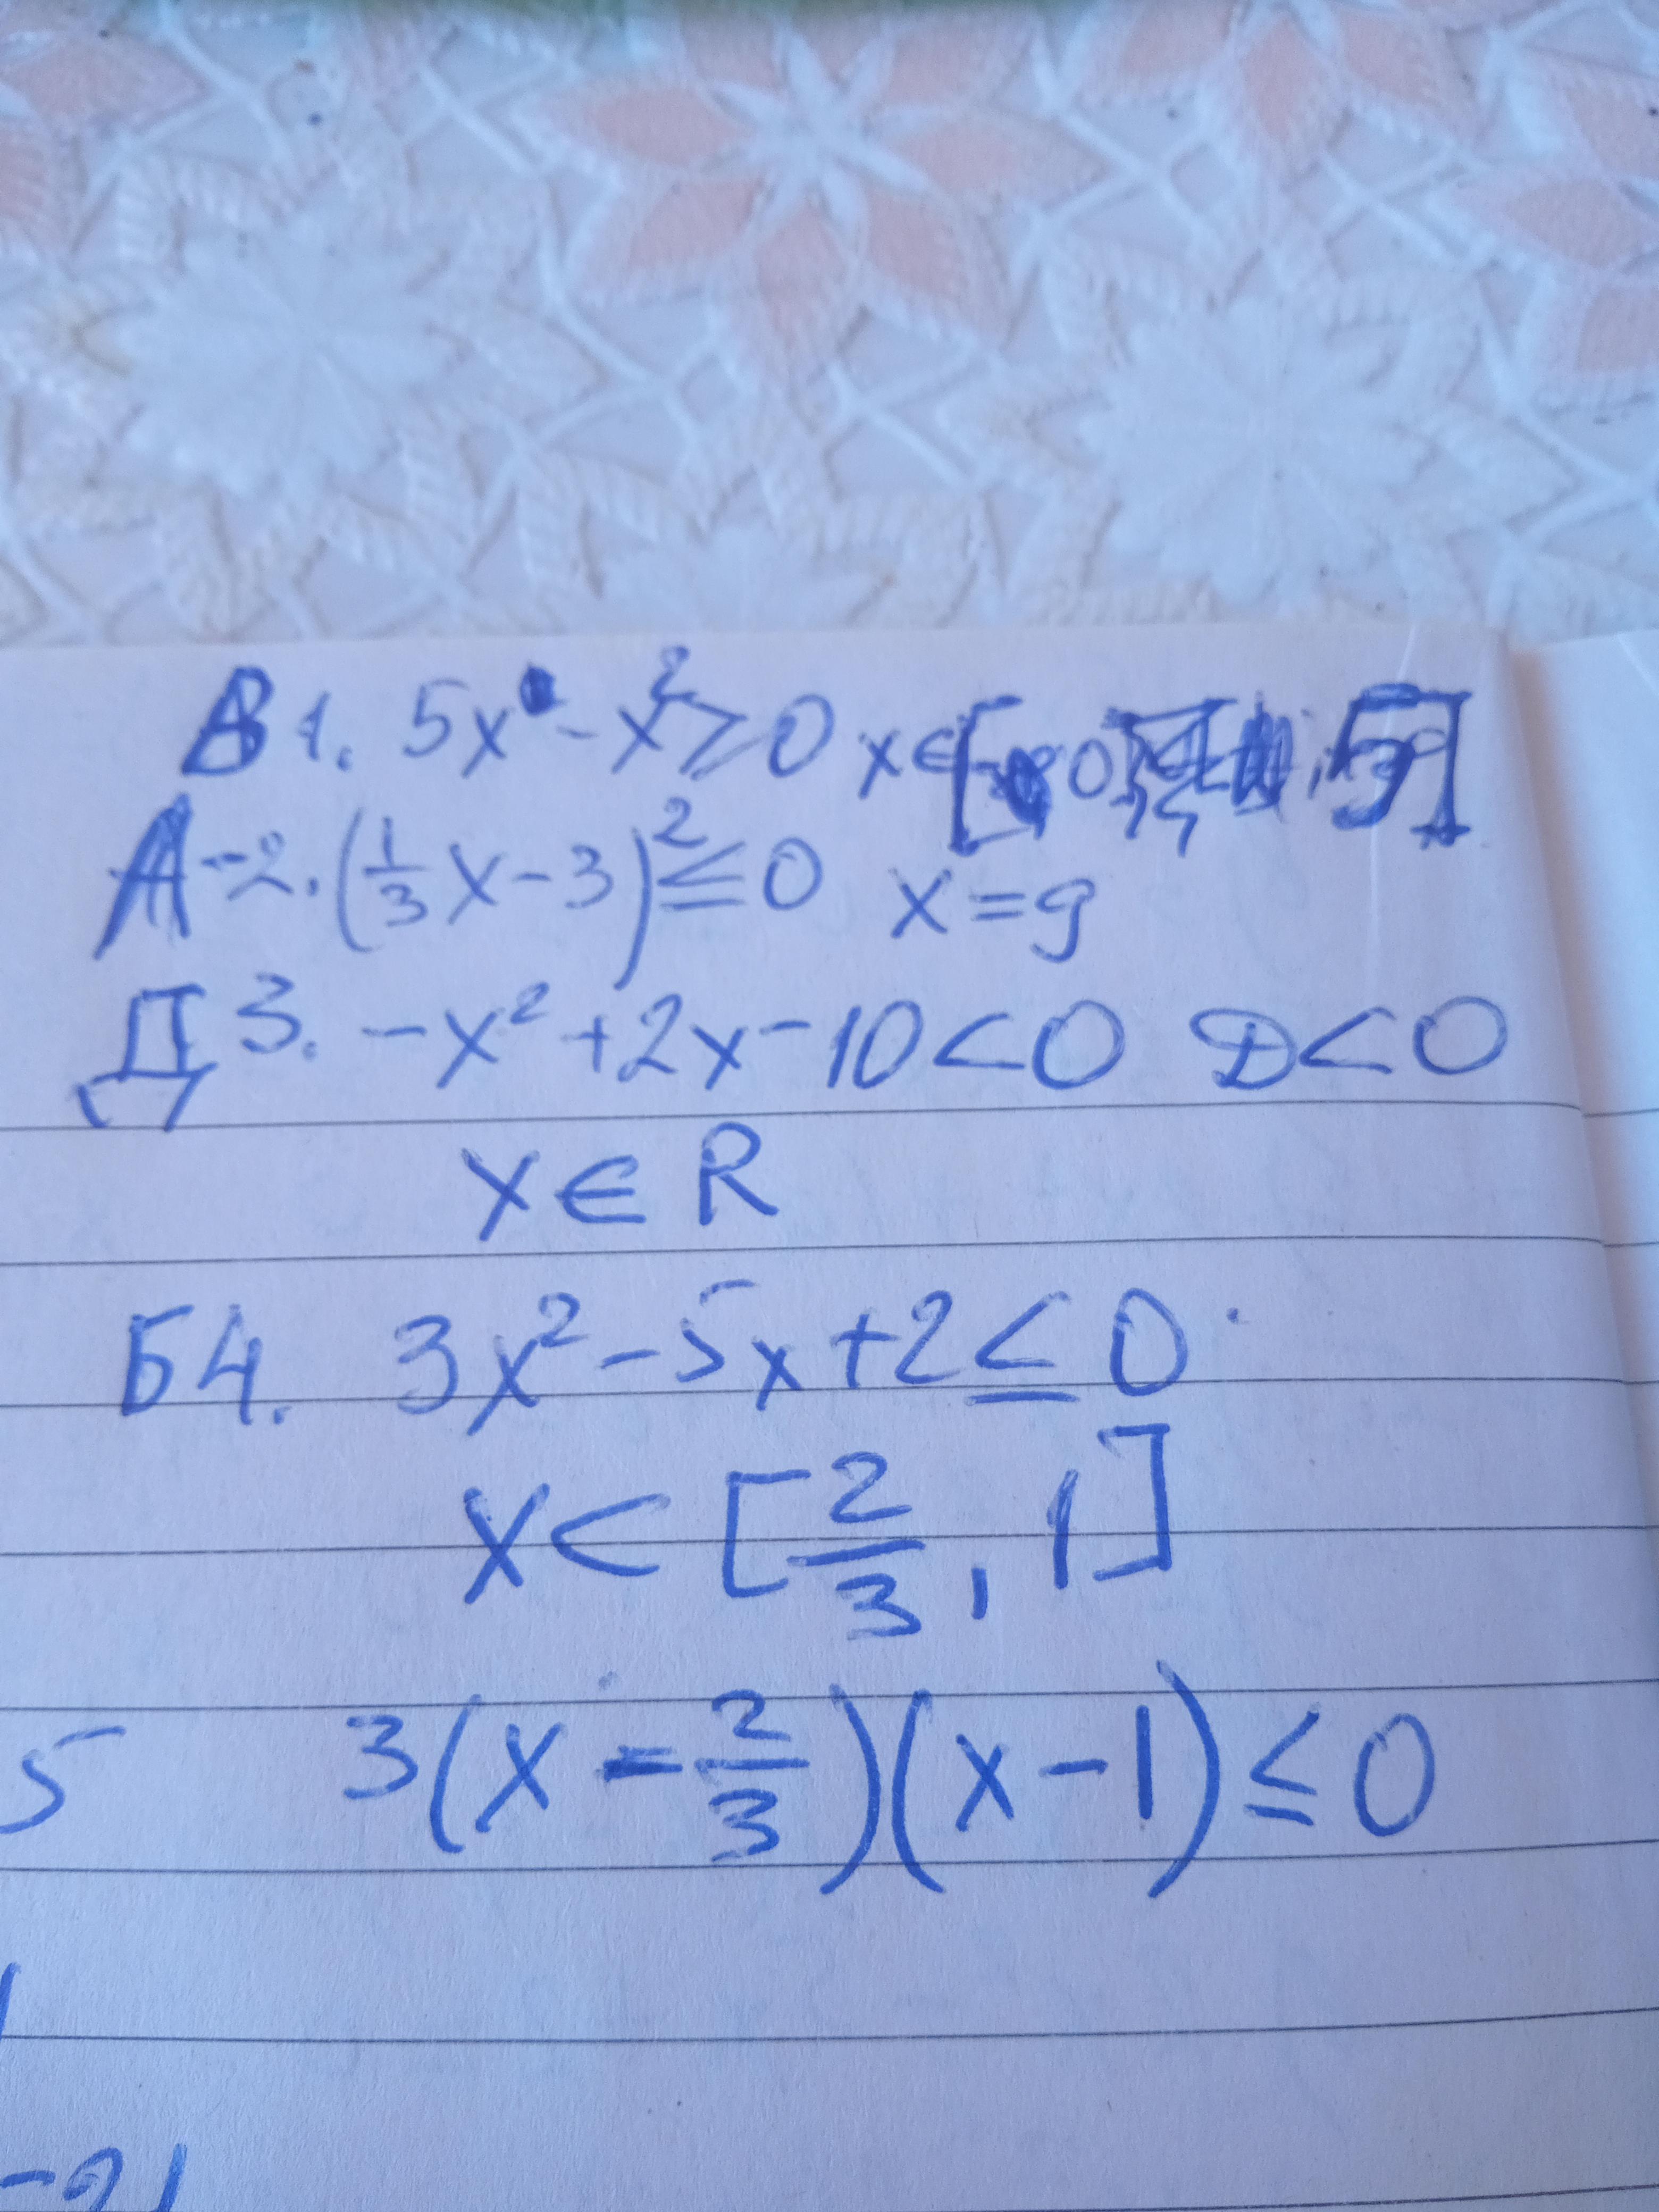 В 1. 5x - x² ≥ 0 x ∈ [0; 5]
А -2. (1/3 x - 3)² ≤ 0 x = 9
Д 3. -x² + 2x - 10 < 0 D < 0
x ∈ R
Б 4. 3x² - 5x + 2 ≤ 0
x < [2/3, 1]
5 3(x - 2/3)(x - 1) ≤ 0
-21